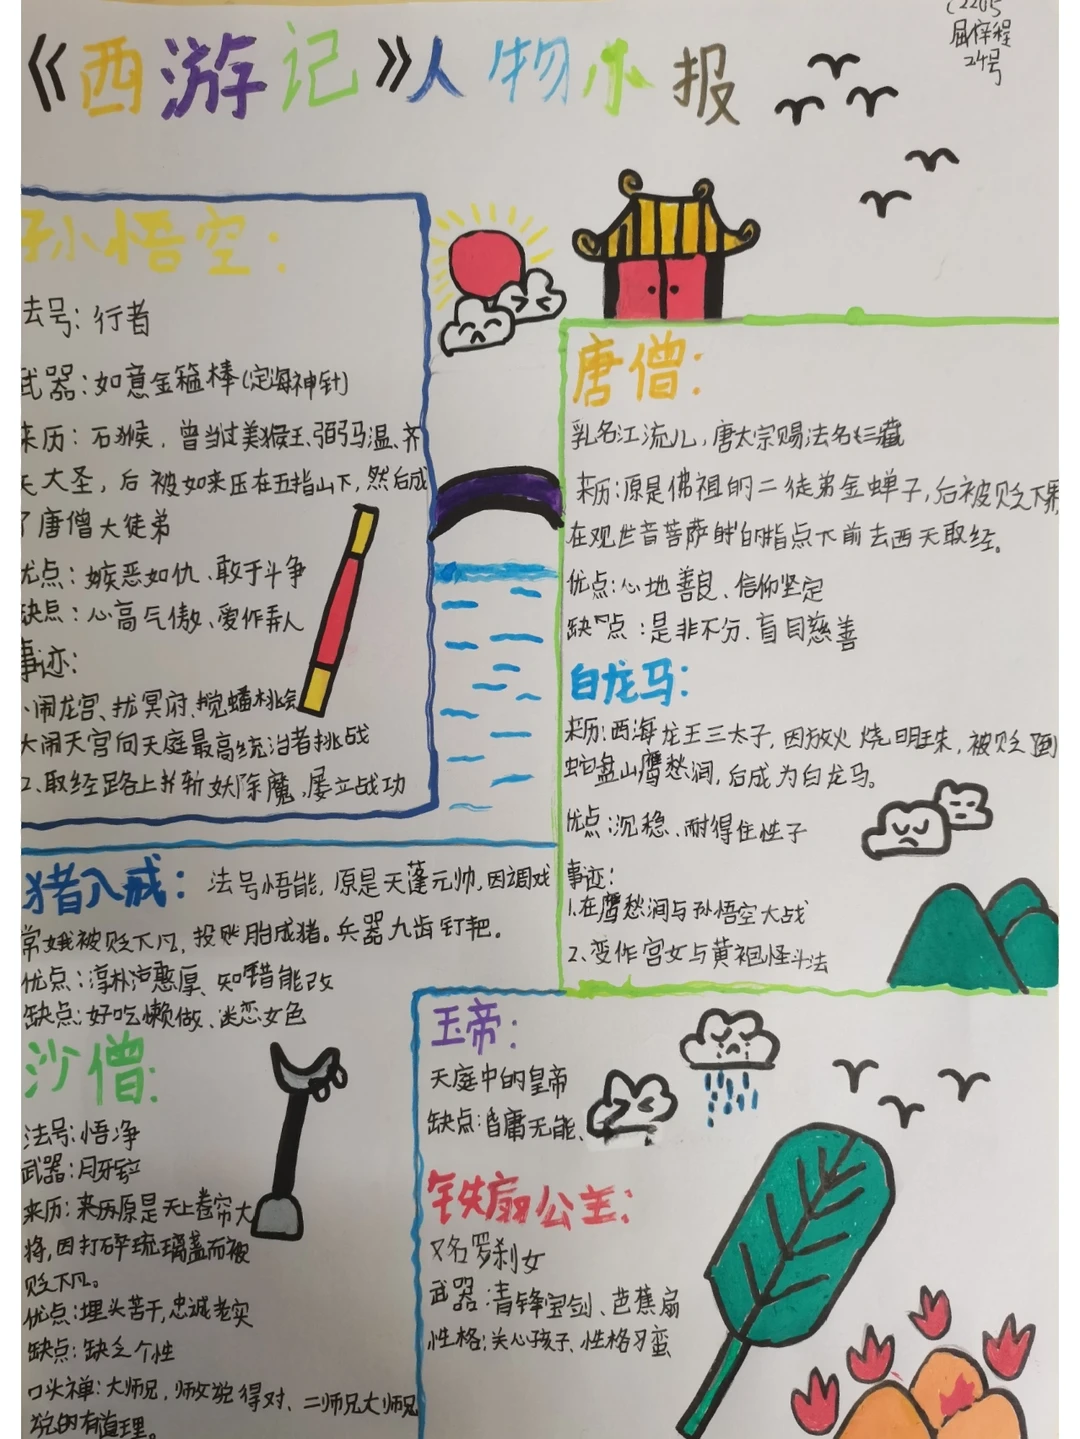 《西游记》人物小报
C2205
24号
孙悟空:
法号: 行者
武器: 如意金箍棒(定海神针)
来历: 石猴, 曾当过美猴王、弼马温、齐
天大圣, 后被如来压在五指山下, 然后成
了唐僧大徒弟
优点: 嫉恶如仇、敢于斗争
缺点: 心高气傲、爱作弄人
事迹:
闹龙宫、扰冥府、搅蟠桃会
大闹天宫向天庭最高统治者挑战
2.取经路上斩妖除魔, 屡立战功
唐僧:
乳名江流儿, 唐太宗赐法名三藏
来历: 原是佛祖的二徒弟金蝉子, 后被贬下界
在观世音菩萨的指点下前去西天取经。
优点: 心地善良、信仰坚定
缺点: 是非不分、盲目慈善
白龙马:
来历: 西海龙王三太子, 因放火烧明珠, 被贬到
蛇盘山鹰愁涧, 后成为白龙马。
优点: 沉稳、耐得住性子
事迹:
1.在鹰愁涧与孙悟空大战
2.变作宫女与黄袍怪斗法
猪八戒: 法号悟能, 原是天蓬元帅, 因调戏
常娥被贬下凡, 投胎成猪。兵器九齿钉耙。
优点: 淳朴憨厚、知错能改
缺点: 好吃懒做、迷恋女色
沙僧:
法号: 悟净
武器: 月牙铲
来历: 来历原是天上卷帘大
将, 因打碎琉璃盏而被
贬下凡。
优点: 埋头苦干, 忠诚老实
缺点: 缺乏个性
口头禅: 大师兄, 师父说得对、二师兄大师兄
说的有道理。
玉帝:
天庭中的皇帝
缺点: 昏庸无能、
铁扇公主:
又名罗刹女
武器: 青锋宝剑、芭蕉扇
性格: 关心孩子、性格刁蛮